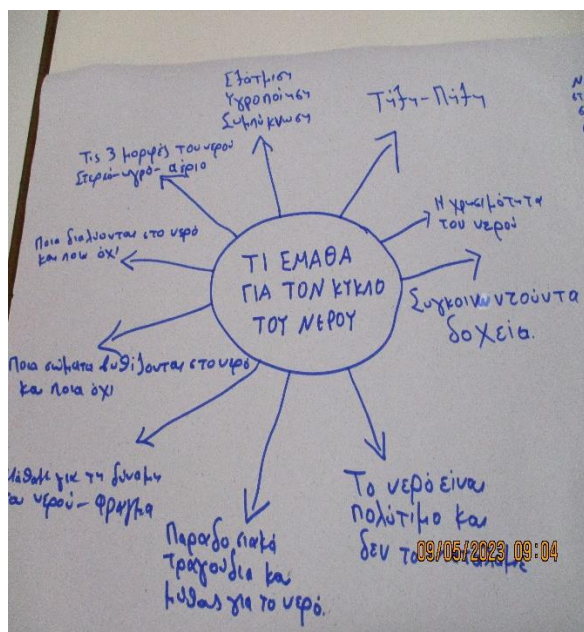 ΤΙ ΕΜΑΘΑ
ΓΙΑ ΤΟΝ ΚΥΚΛΟ
ΤΟΥ ΝΕΡΟΥ
Εξάτμιση
Υγροποίηση
Συμπύκνωση
Τήξη-Πήξη
Η χρησιμότητα
του νερού
Συγκοινωνούντα
δοχεία.
Το νερό είναι
πολύτιμο και
δεν το
Παραδοσιακά
τραγούδια και
μύθοι για το νερό.
για τη δύναμη
νερού-Φράγμα
Ποια σώματα βυθίζονται στο νερό
και ποια όχι
Ποια διαλύονται στο νερό
και ποια όχι
Τις 3 μορφές του νερού
Στερεό-υγρό-αέριο
09/05/2023 09:04